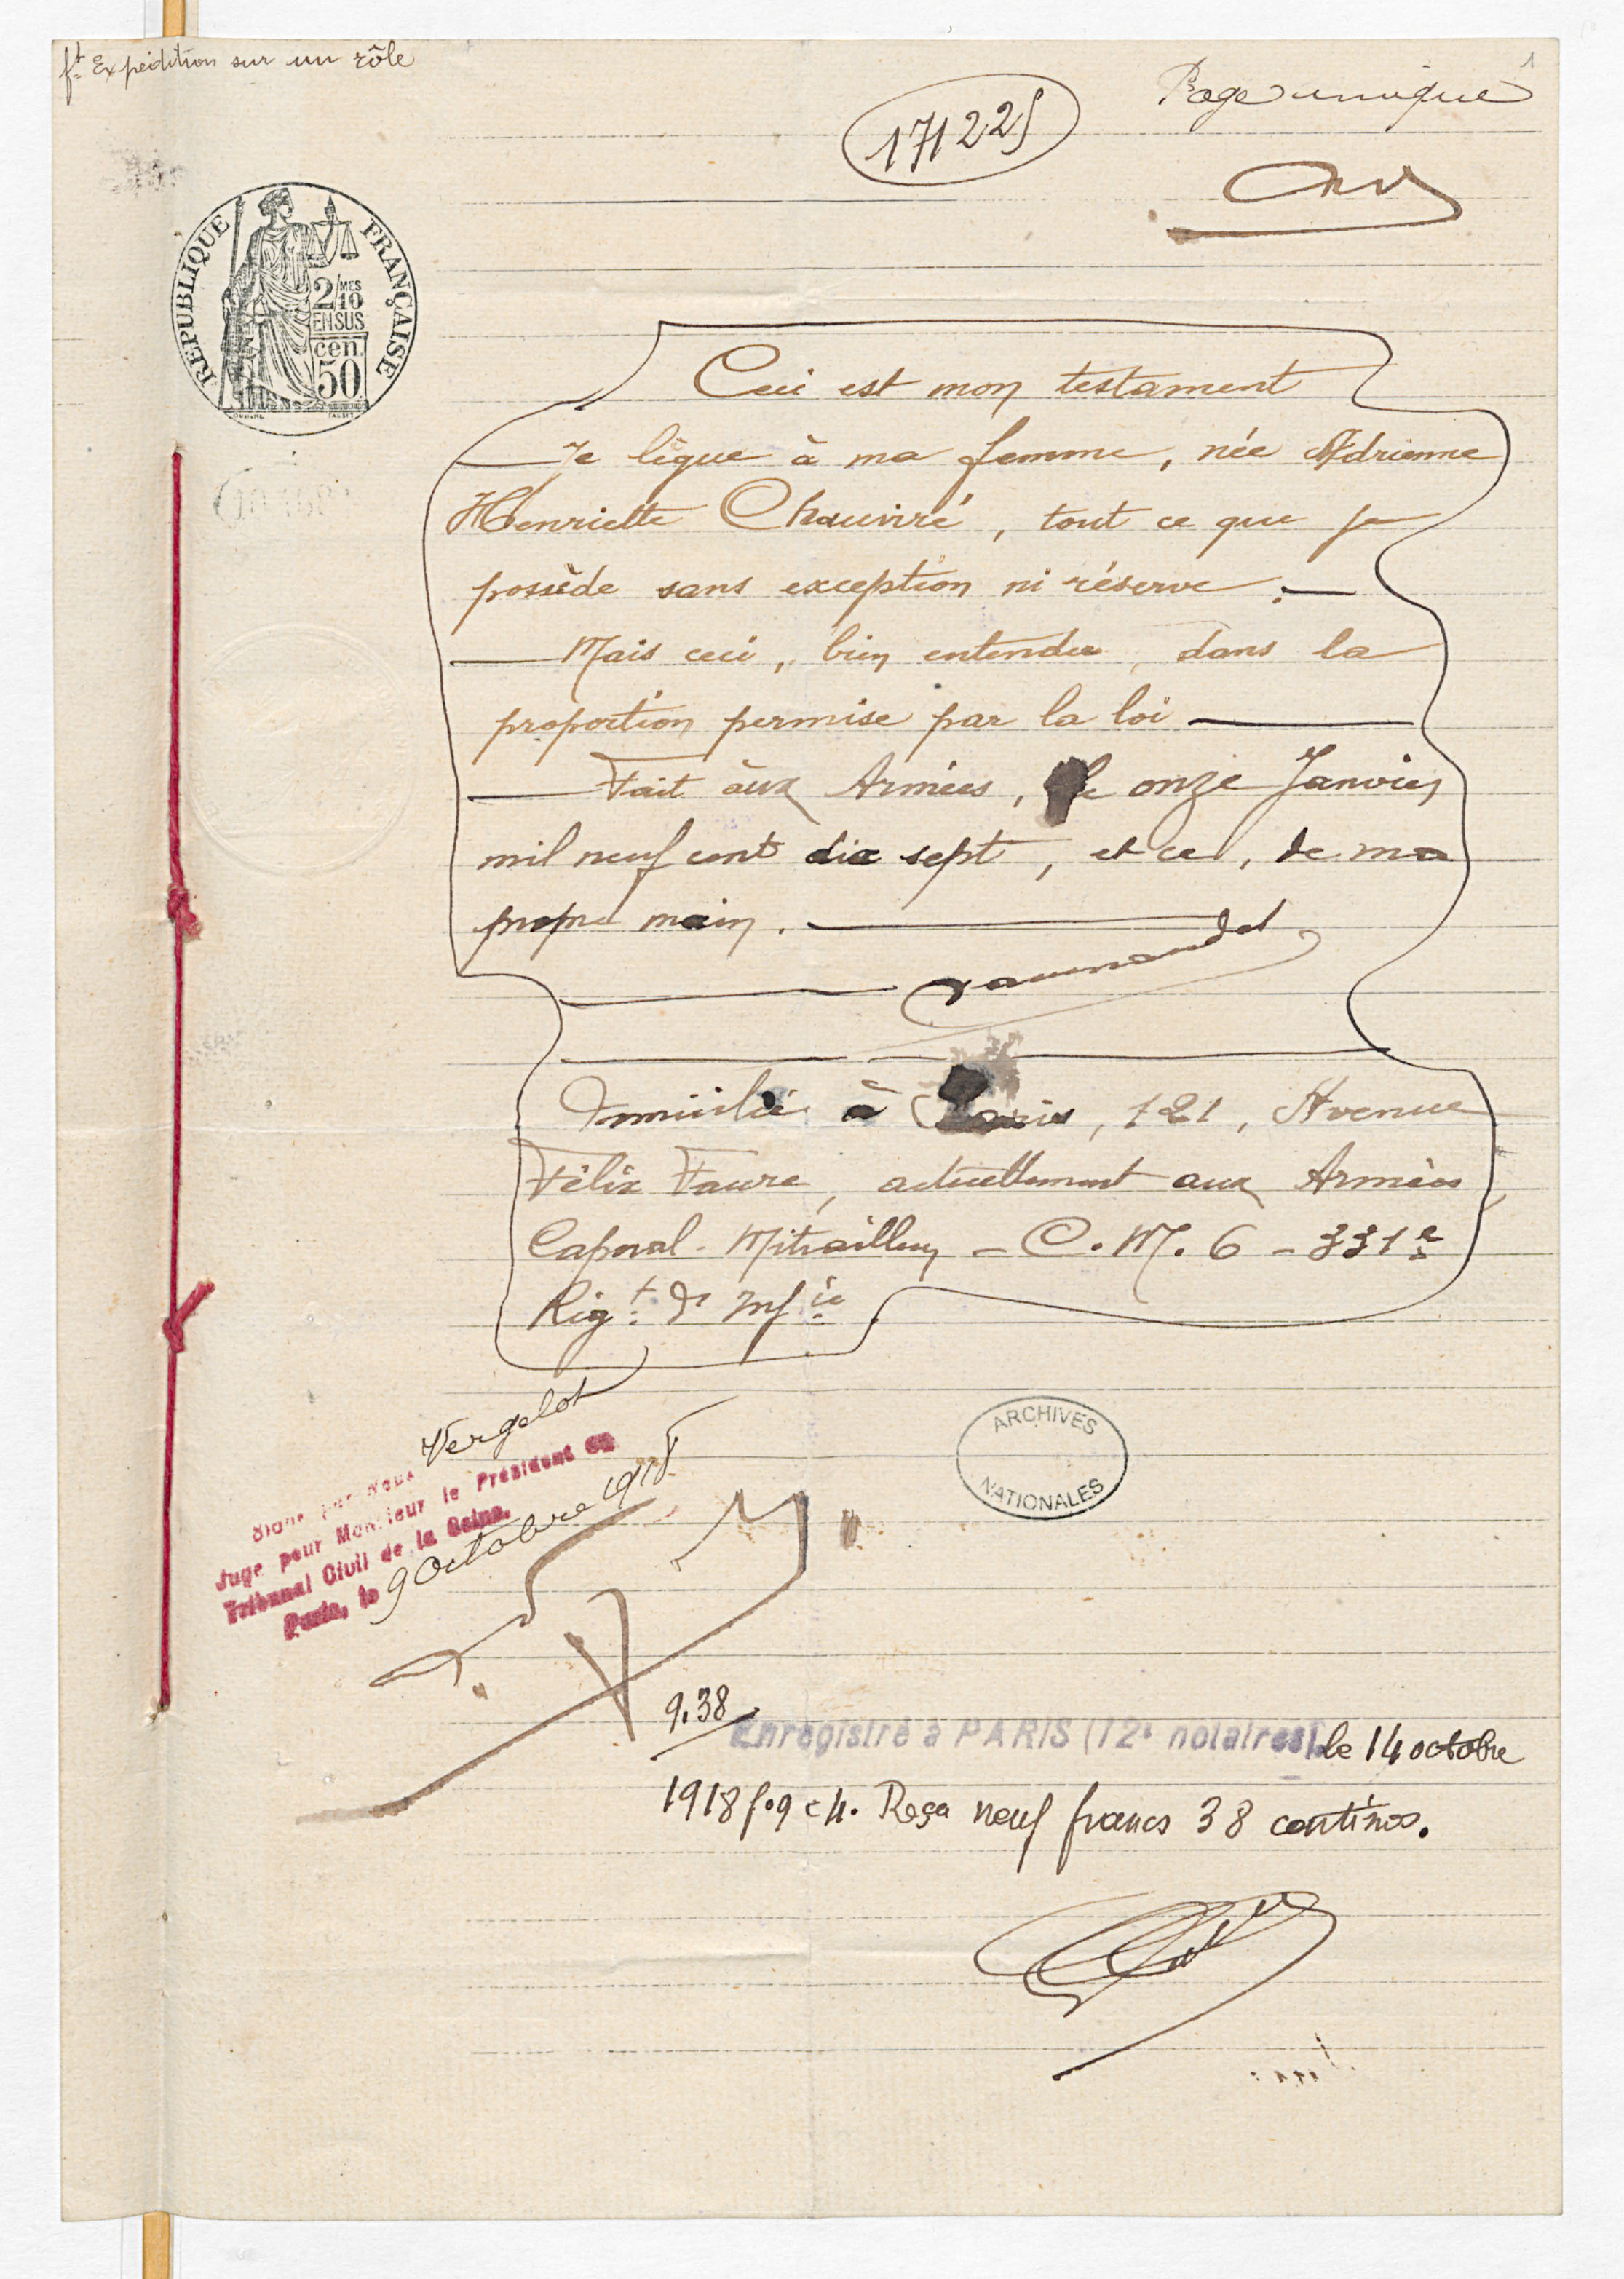 ft Expédition sur un rôle
1
Page unique
171225
REPUBLIQUE FRANÇAISE
2/10 MES
EN SUS
cen.
50
Ceci est mon testament
Je lègue à ma femme, née Adrienne
Henriette Chauviré, tout ce que je
possède sans exception ni réserve.
Mais ceci, bien entendu, dans la
proportion permise par la loi
Fait aux Armées, le onze Janvier
mil neuf cent dix sept, et ce, de ma
propre main.
Domicilié à Paris, 121, Avenue
Félix Faure, actuellement aux Armées
Caporal-Mitrailleur - C. M. 6 - 331e
Rigt. d'Infie
Vergelot
Signé par Nous
Juge pour Monsieur le Président du
Tribunal Civil de la Seine.
Paris, le 9 Octobre 1918
ARCHIVES
NATIONALES
9.38
Enregistré à PARIS (12e notaires) le 14 octobre
1918 f.9 c 4. Reçu neuf francs 38 centimes.